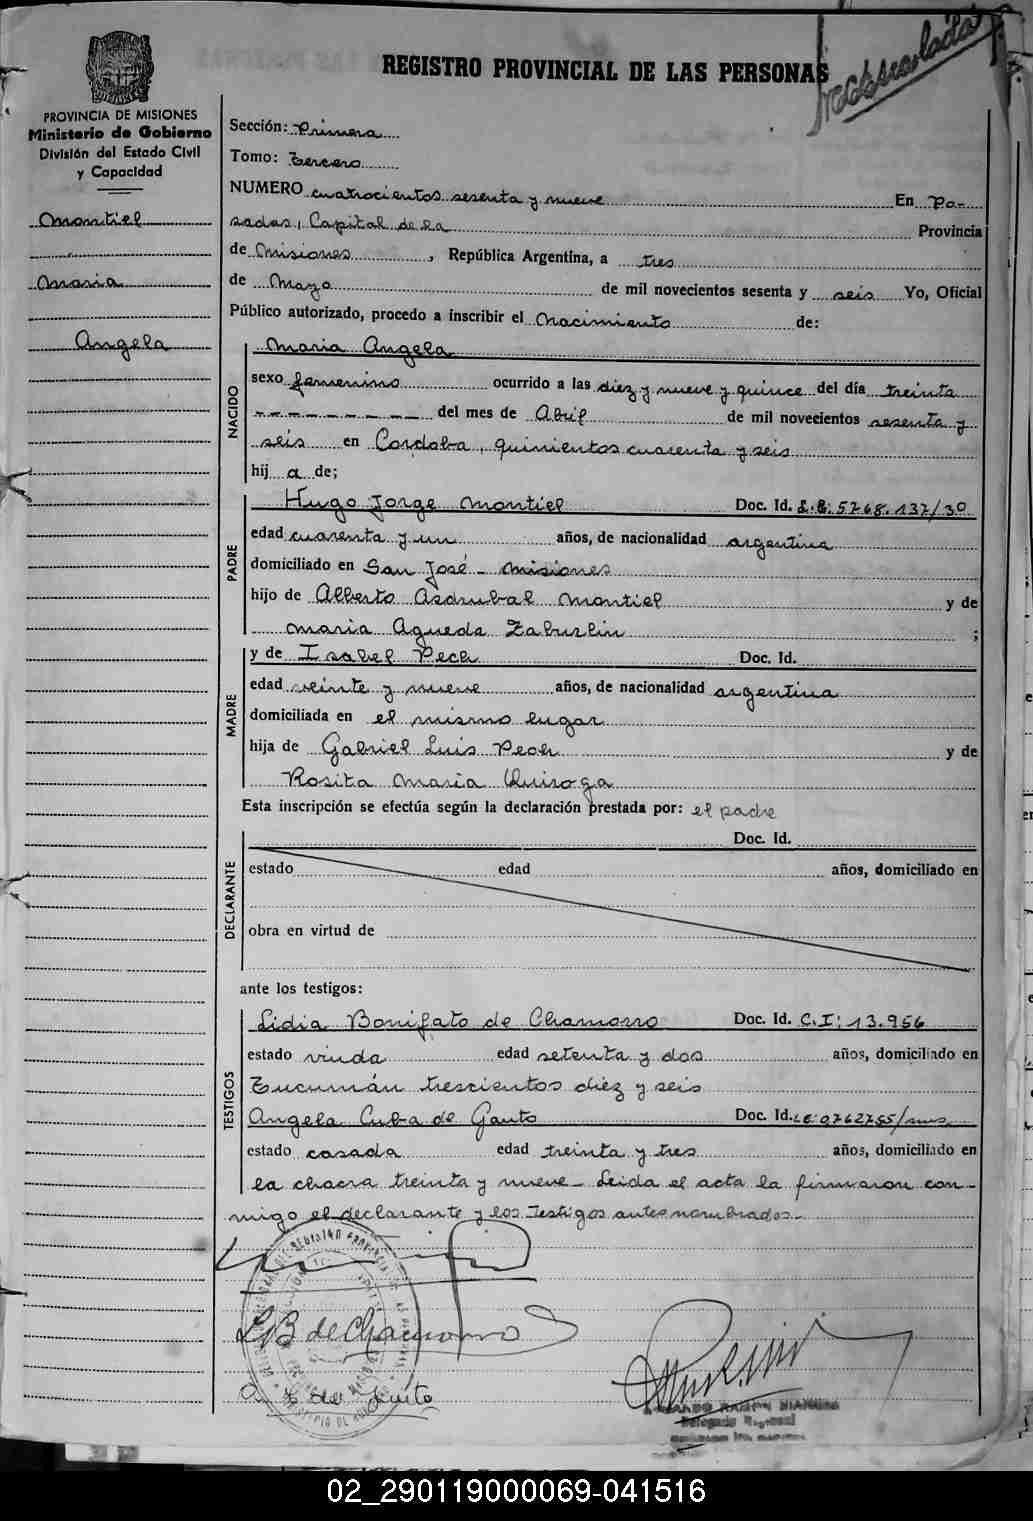 REGISTRO PROVINCIAL DE LAS PERSONAS
PROVINCIA DE MISIONES
Ministerio de Gobierno
División del Estado Civil
y Capacidad
Montiel
Maria
Angela
Sección: Primera
Tomo: Tercero
NUMERO cuatrocientos sesenta y nueve En Po-
sadas, Capital de la Provincia
de Misiones, República Argentina, a tres
de Mayo de mil novecientos sesenta y seis Yo, Oficial
Público autorizado, procedo a inscribir el Nacimiento de:
NACIDO
Maria Angela
sexo femenino ocurrido a las diez y nueve y quince del día treinta
del mes de Abril de mil novecientos sesenta y
seis en Cordoba, quinientos cuarenta y seis
hij a de;
PADRE
Hugo Jorge Montiel Doc. Id. L.E. 5768.137/30
edad cuarenta y un años, de nacionalidad argentina
domiciliado en San José - Misiones
hijo de Alberto Asdrubal Montiel y de
Maria Agueda Zaburlin ;
MADRE
y de Isabel Pech Doc. Id.
edad veinte y nueve años, de nacionalidad argentina
domiciliada en el mismo lugar
hija de Gabriel Luis Pech y de
Rosita Maria Quiroga
Esta inscripción se efectúa según la declaración prestada por: el padre
DECLARANTE
Doc. Id.
estado edad años, domiciliado en
obra en virtud de
ante los testigos:
TESTIGOS
Lidia Bonifato de Chamorro Doc. Id. C.I: 13.956
estado viuda edad setenta y dos años, domiciliado en
Tucumán trescientos diez y seis
Angela Cuba de Gauto Doc. Id. LE 0762755/
estado casada edad treinta y tres años, domiciliado en
la chacra treinta y nueve - Leida el acta la firmaron con-
migo el declarante y los Testigos antes nombrados -
LB de Chamorro
02_290119000069-041516